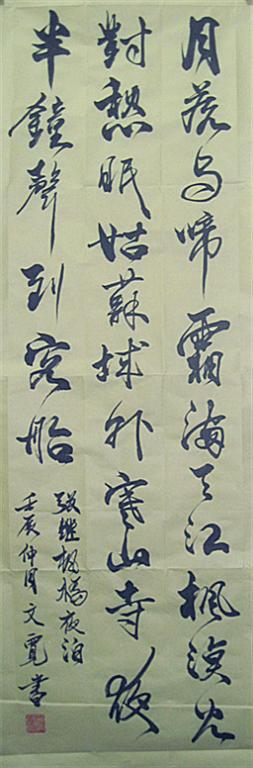 月落烏啼霜滿天江楓漁火
對愁眠姑蘇城外寒山寺夜
半鐘聲到客船
张继枫橋夜泊
壬辰仲月文寬書